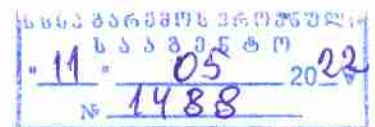 სსიპ გარემოს ეროვნული
სააგენტო
" 11 " 05 2022
№ 1488